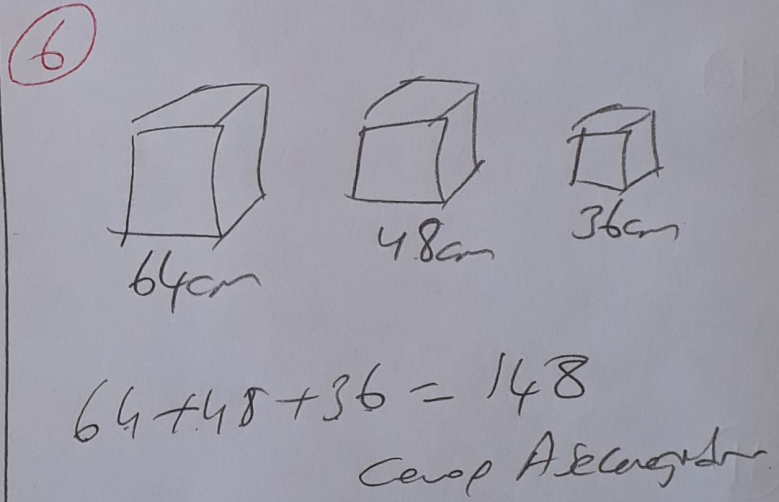 6
64cm 48cm 36cm
64+48+36=148
Cevap A seçeneğidir